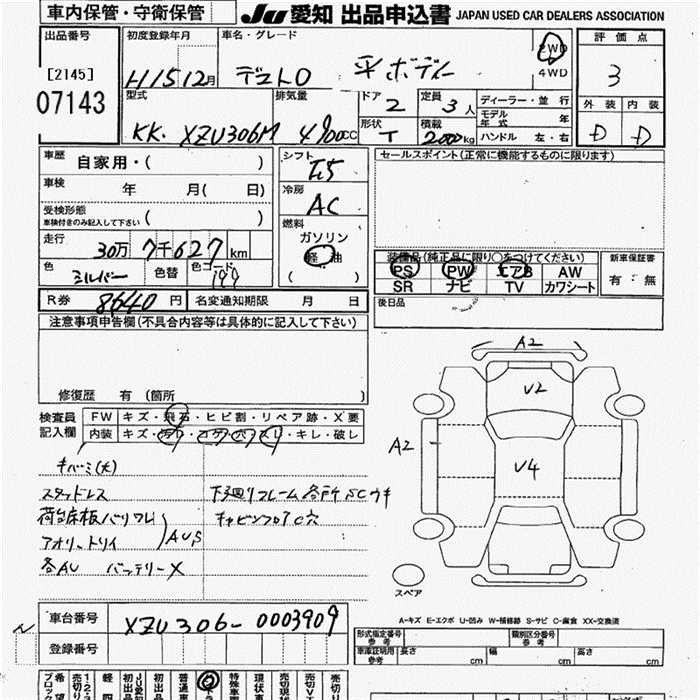 車内保管・守衛保管
JU 愛知 出品申込書 JAPAN USED CAR DEALERS ASSOCIATION
出品番号
[2145]
07143
初度登録年月
H15 12月
車名・グレード
デュトロ 平ボディー
2WD
4WD
評価点
3
外装 内装
D D
型式
KK. XZU306M
排気量
4900cc
ドア 2
定員 3人
形状 T
積載 2000kg
ディーラー・並行
モデル年式 年
ハンドル 左・右
車歴 自家用・( )
車検 年 月( 日)
受検形態
車検付きのみ記入して下さい ( )
走行 30万7千627km
色 シルバー 色替 色コード 199
シフト F5
冷房 AC
燃料
ガソリン
軽油
( )
セールスポイント(正常に機能するものに限ります)
装備品(純正品に限り○をつけてください)
PS PW エアB AW
SR ナビ TV カワシート
新車保証書
有・無
後日品
R券 8640円 名変通知期限 月 日
注意事項申告欄(不具合内容等は具体的に記入して下さい)
修復歴 有 (箇所 )
検査員記入欄
FW キズ・飛石・ヒビ割・リペア跡・X要
内装 キズ・汚れ・コゲ・穴・スレ・キレ・破レ
キバミ(大)
スタッドレス
荷台床板バリワレ
アオリ、トリイ AUS
各AU バッテリーX
下廻りフレーム各所SCサキ
キャビンフロアC穴
A2
V2
A2
V4
スペア
A-キズ E-エクボ U-凹み W-補修跡 S-サビ C-腐食 XX-交換済
車台番号 XZU306-0003909
登録番号
形式指定番号 参考
類別区分番号 参考
車庫証明用 参考 長さ cm 幅 cm 高さ cm